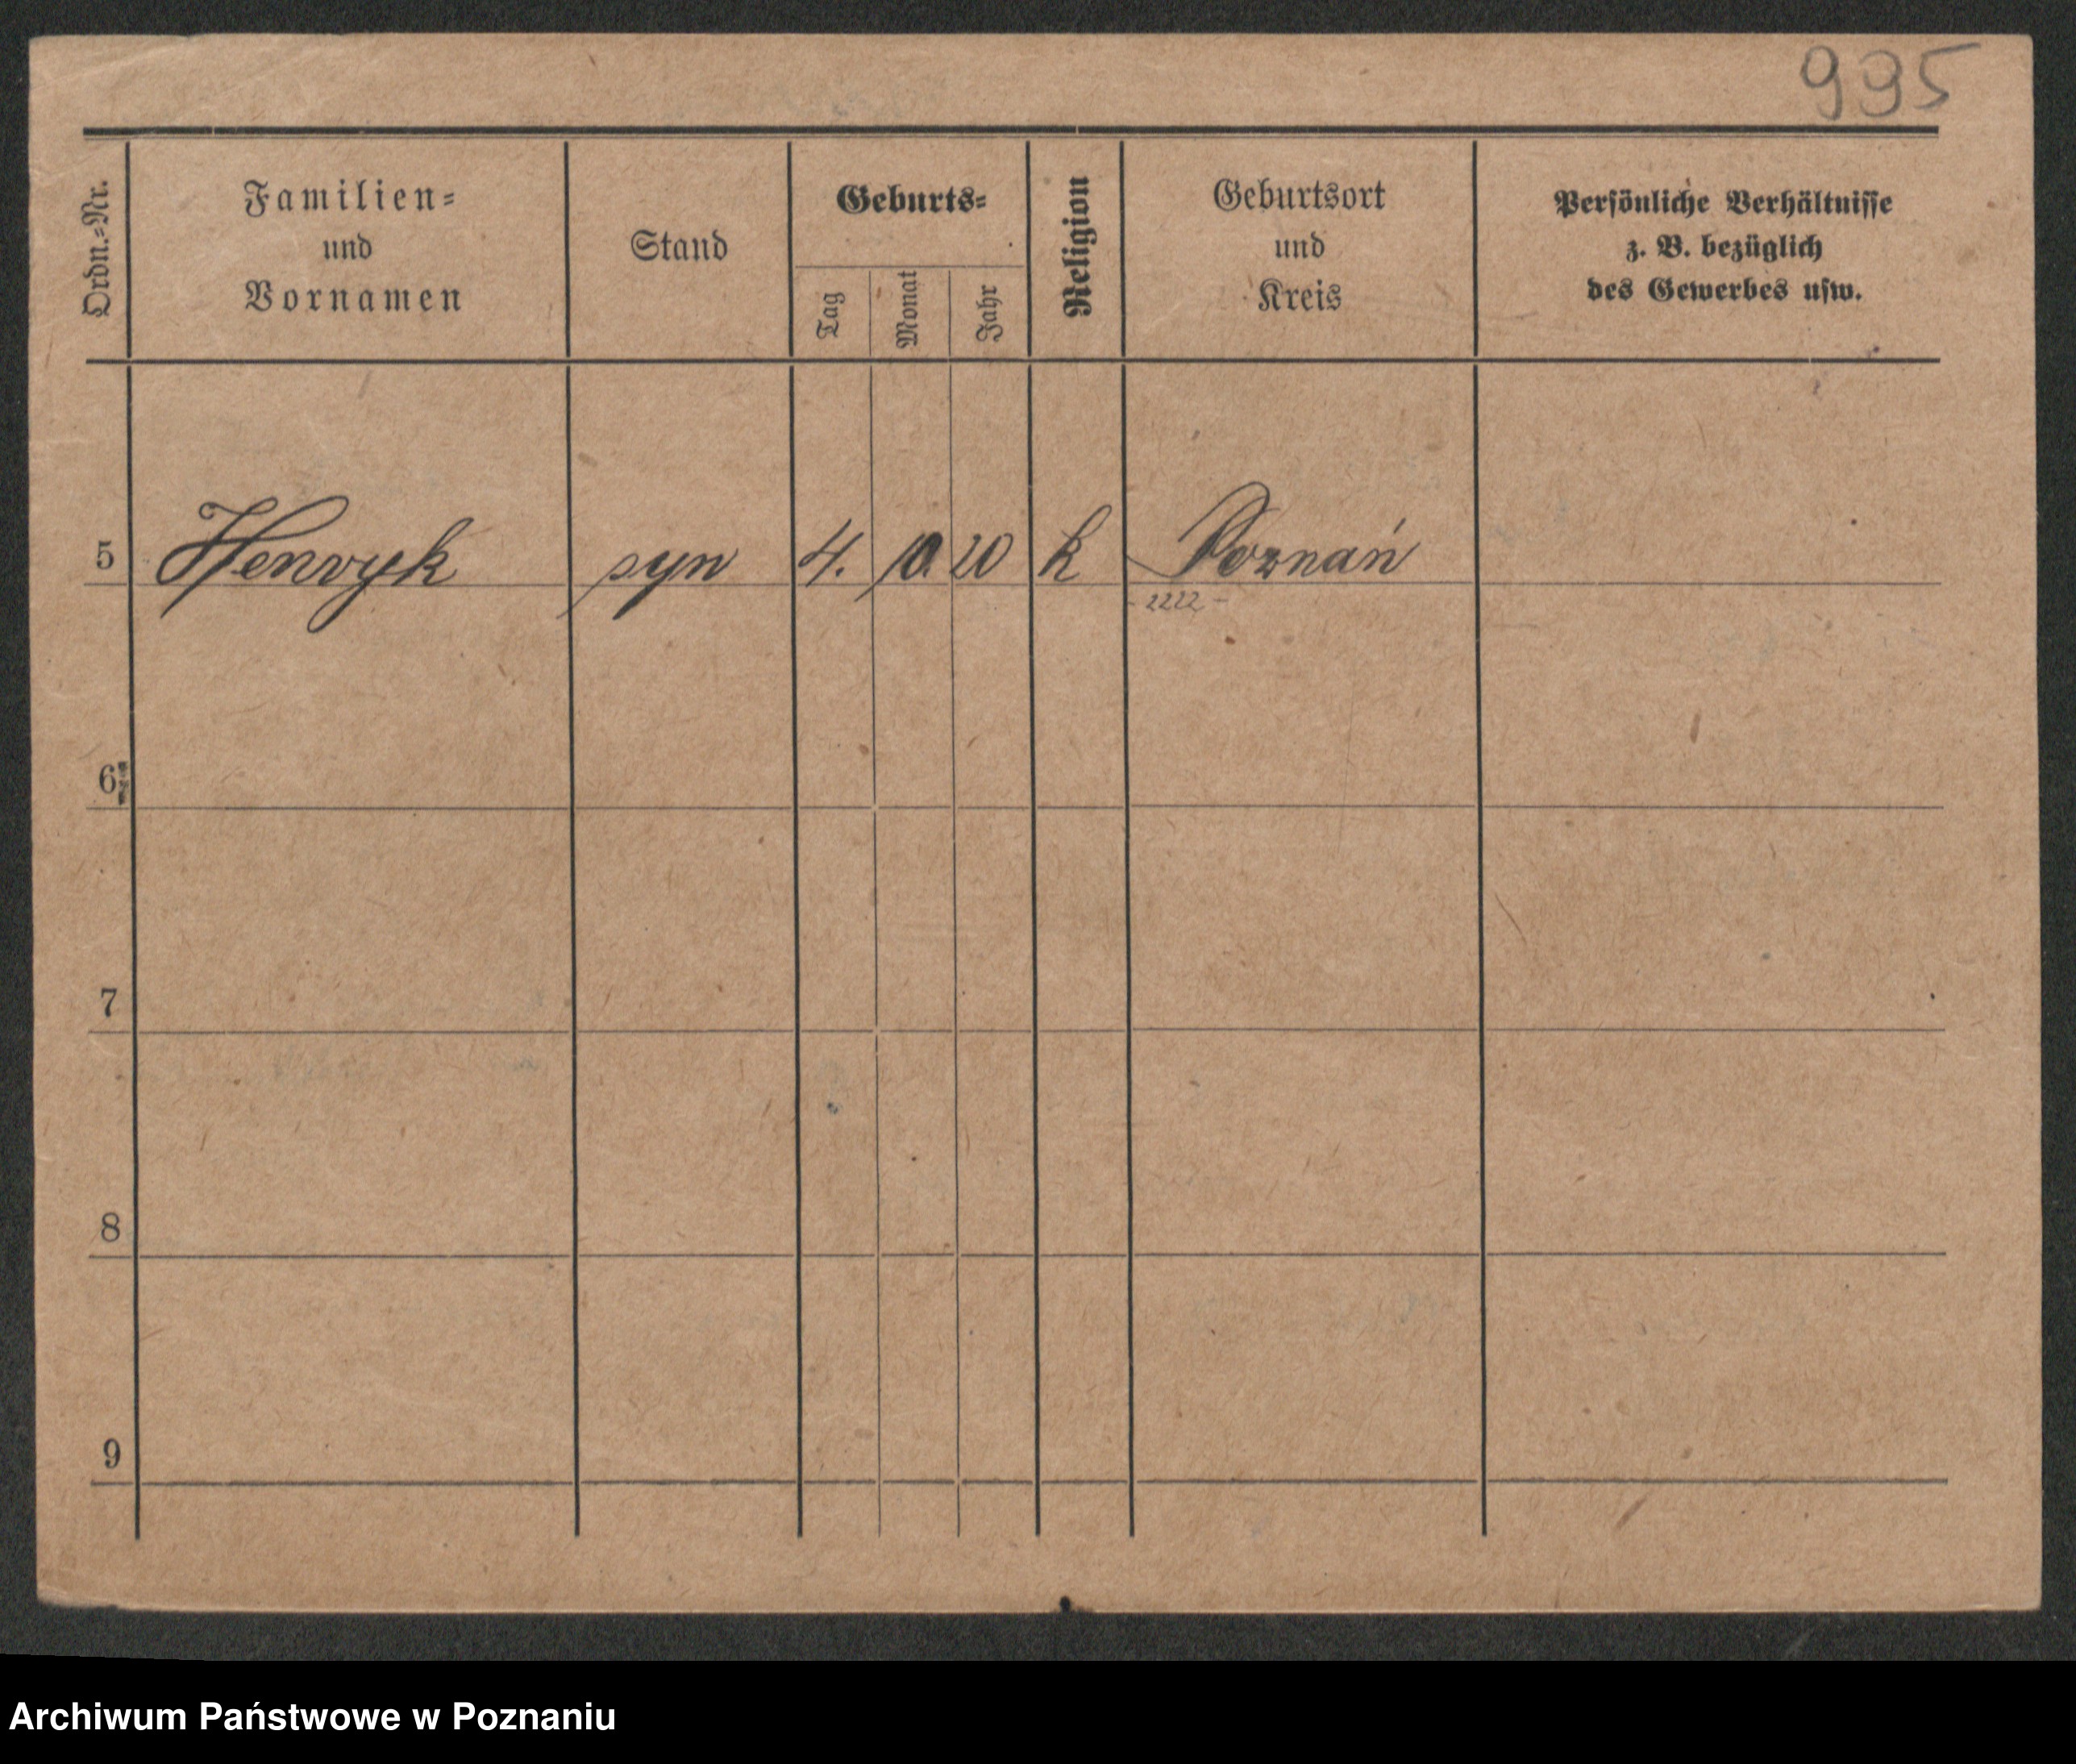 995
Ordn.-Nr.
Familien-
und
Vornamen
Stand
Geburts-
Tag
Monat
Jahr
Religion
Geburtsort
und
Kreis
Persönliche Verhältnisse
z. B. bezüglich
des Gewerbes usw.
5 Henryk syn 4. 10. 20 k Poznań
- 2222 -
6
7
8
9
Archiwum Państwowe w Poznaniu